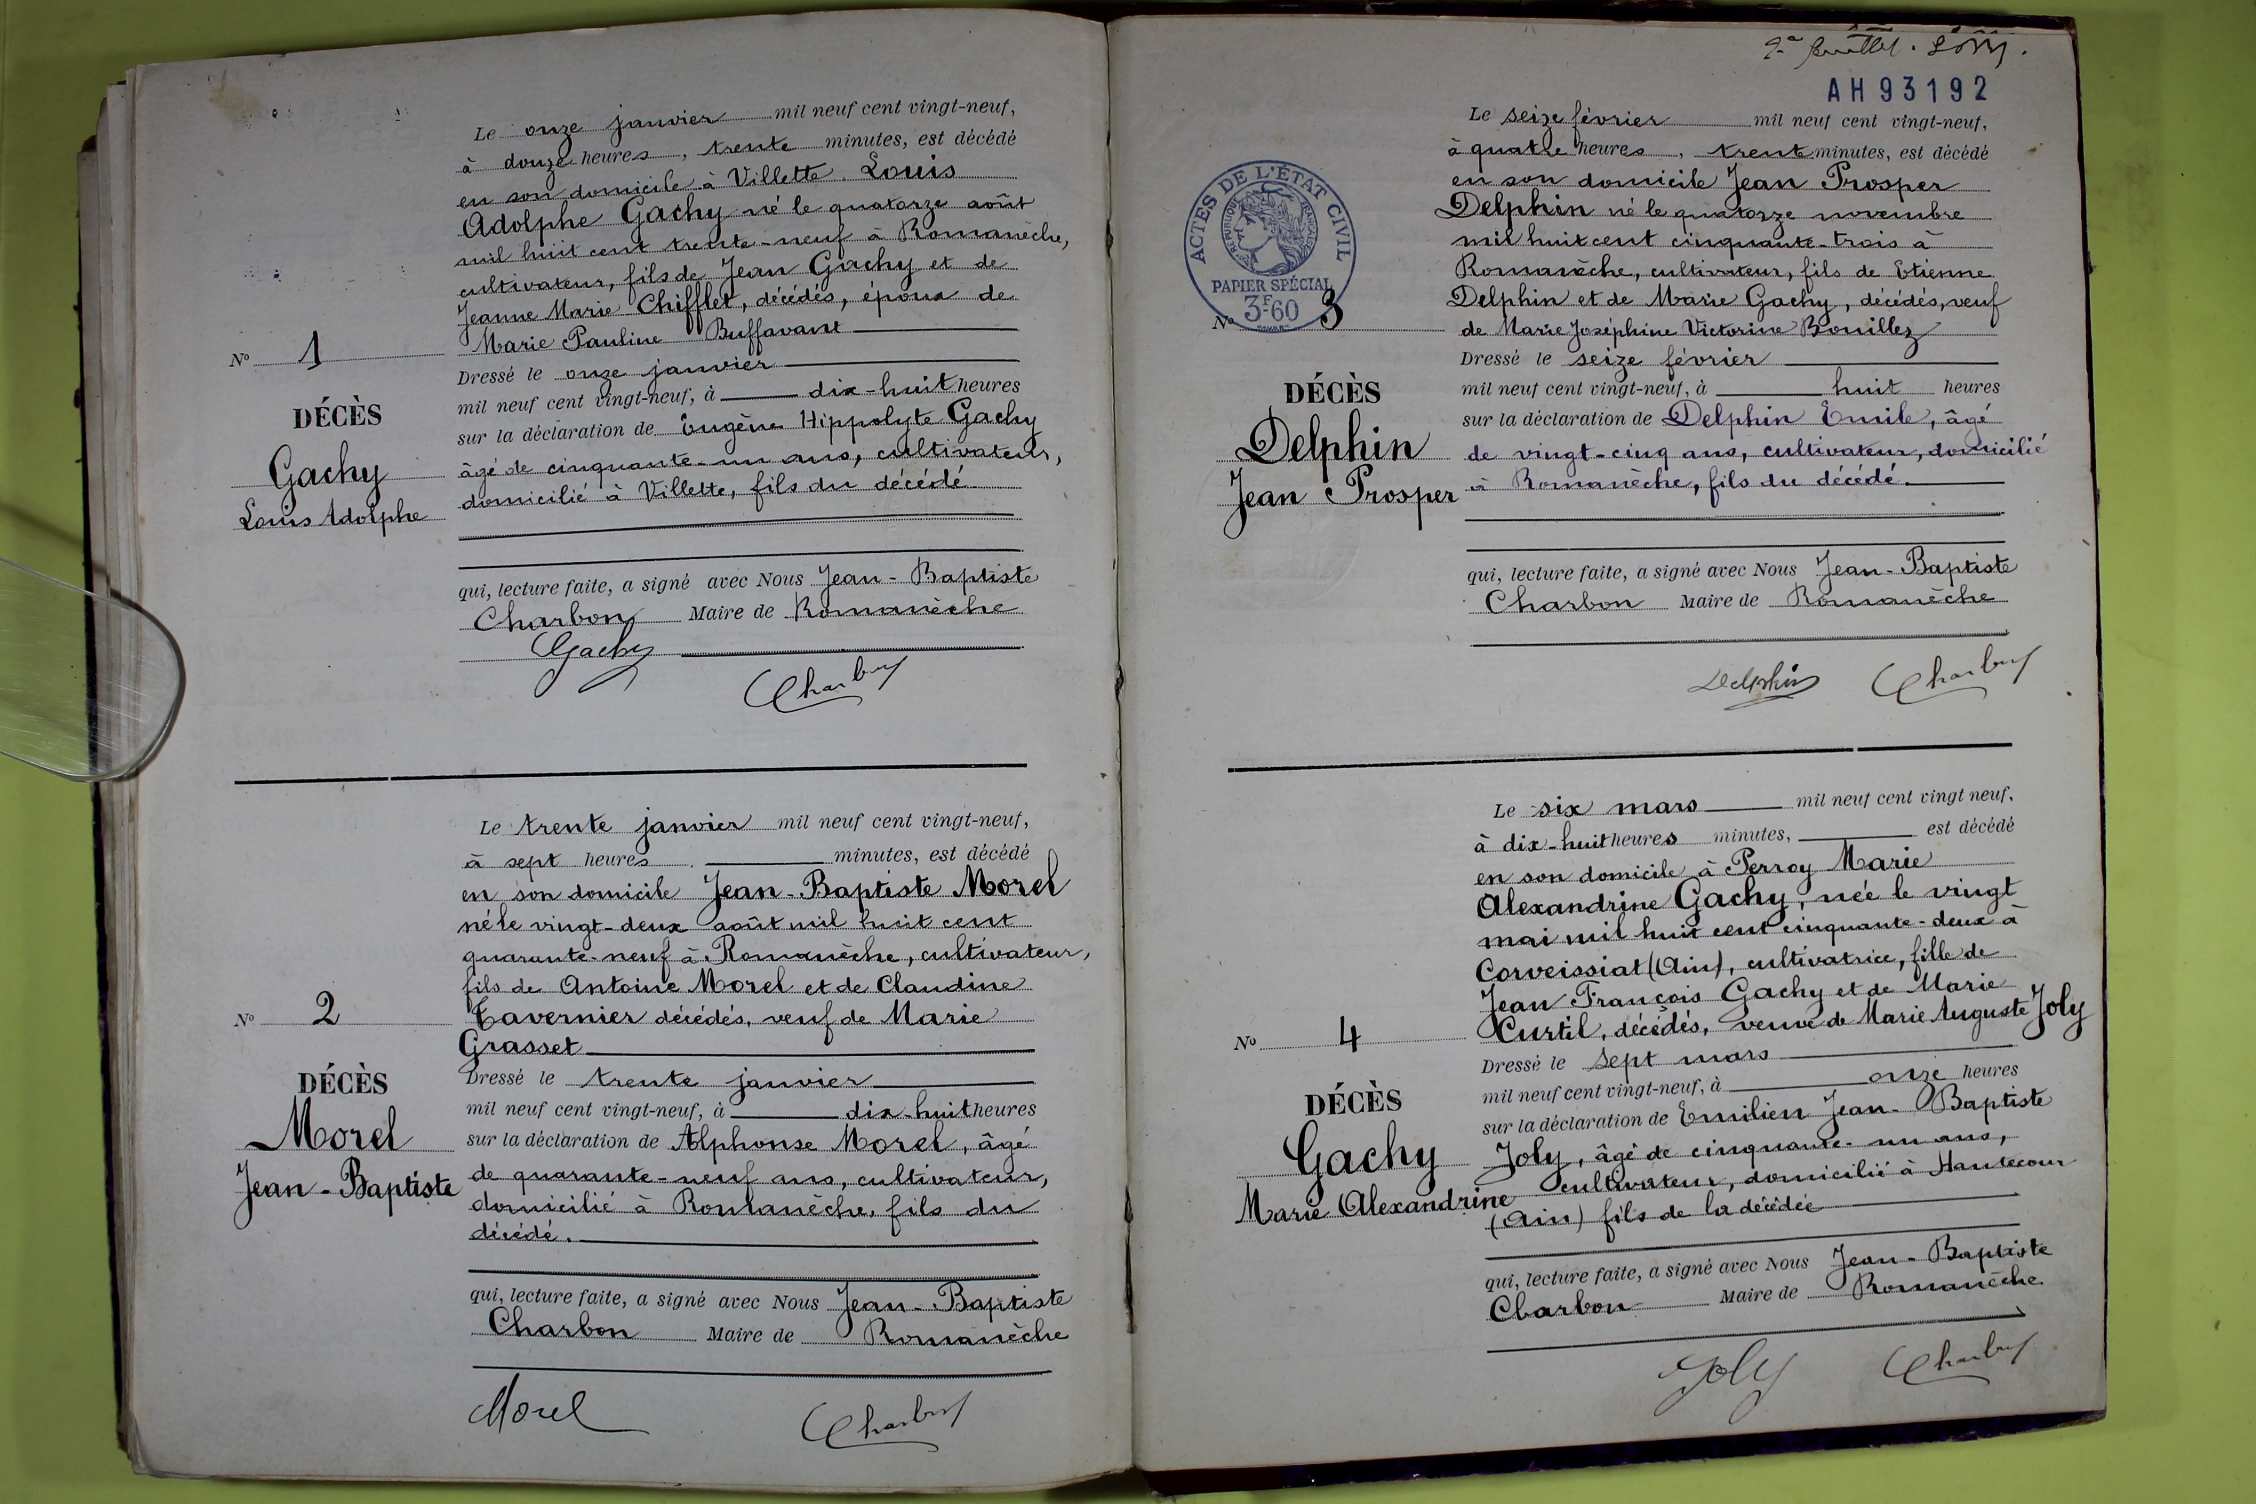 Le onze janvier mil neuf cent vingt-neuf,
à douze heures, trente minutes, est décédé
en son domicile à Villette. Louis
Adolphe Gachy né le quatorze août
mil huit cent trente-neuf à Romanèche,
cultivateur, fils de Jean Gachy et de
Jeanne Marie Chifflet, décédés, époux de
Marie Pauline Buffavant
Nº 1
Dressé le onze janvier
mil neuf cent vingt-neuf, à dix-huit heures
DÉCÈS
sur la déclaration de Eugène Hippolyte Gachy
Gachy
âgé de cinquante-un ans, cultivateur,
Louis Adolphe
domicilié à Villette, fils du décédé
qui, lecture faite, a signé avec Nous Jean-Baptiste
Charbon Maire de Romanèche
Gachy
Charbon
Le trente janvier mil neuf cent vingt-neuf,
à sept heures. minutes, est décédé
en son domicile Jean-Baptiste Morel
né le vingt-deux août mil huit cent
quarante-neuf à Romanèche, cultivateur,
fils de Antoine Morel et de Claudine
Nº 2
Tavernier décédés, veuf de Marie
Grasset
DÉCÈS
Dressé le trente janvier
mil neuf cent vingt-neuf, à dix-huit heures
Morel
sur la déclaration de Alphonse Morel, âgé
Jean-Baptiste
de quarante-neuf ans, cultivateur,
domicilié à Romanèche, fils du
décédé.
qui, lecture faite, a signé avec Nous Jean-Baptiste
Charbon Maire de Romanèche
Morel
Charbon
AH93192
Le seize février mil neuf cent vingt-neuf,
à quatre heures, trente minutes, est décédé
en son domicile Jean Prosper
Delphin né le quatorze novembre
mil huit cent cinquante-trois à
Romanèche, cultivateur, fils de Etienne
Delphin et de Marie Gachy, décédés, veuf
de Marie Joséphine Victorine Bouillez
ACTES DE L'ÉTAT CIVIL
RÉPUBLIQUE FRANÇAISE
PAPIER SPÉCIAL
3F60
Nº 3
Dressé le seize février
mil neuf cent vingt-neuf, à huit heures
DÉCÈS
sur la déclaration de Delphin Emile, âgé
Delphin
de vingt-cinq ans, cultivateur, domicilié
Jean Prosper
à Romanèche, fils du décédé.
qui, lecture faite, a signé avec Nous Jean-Baptiste
Charbon Maire de Romanèche
Delphin
Charbon
Le six mars mil neuf cent vingt neuf,
à dix-huit heures minutes, est décédé
en son domicile à Perroy Marie
Alexandrine Gachy, née le vingt
mai mil huit cent cinquante-deux à
Corveissiat (Ain), cultivatrice, fille de
Jean François Gachy et de Marie
Curtil, décédés, veuve de Marie Auguste Joly
Nº 4
Dressé le sept mars
mil neuf cent vingt-neuf, à onze heures
DÉCÈS
sur la déclaration de Emilien Jean-Baptiste
Gachy
Joly, âgé de cinquante-un ans,
Marie Alexandrine
cultivateur, domicilié à Hautecour
(Ain) fils de la décédée
qui, lecture faite, a signé avec Nous Jean-Baptiste
Charbon Maire de Romanèche
Joly
Charbon